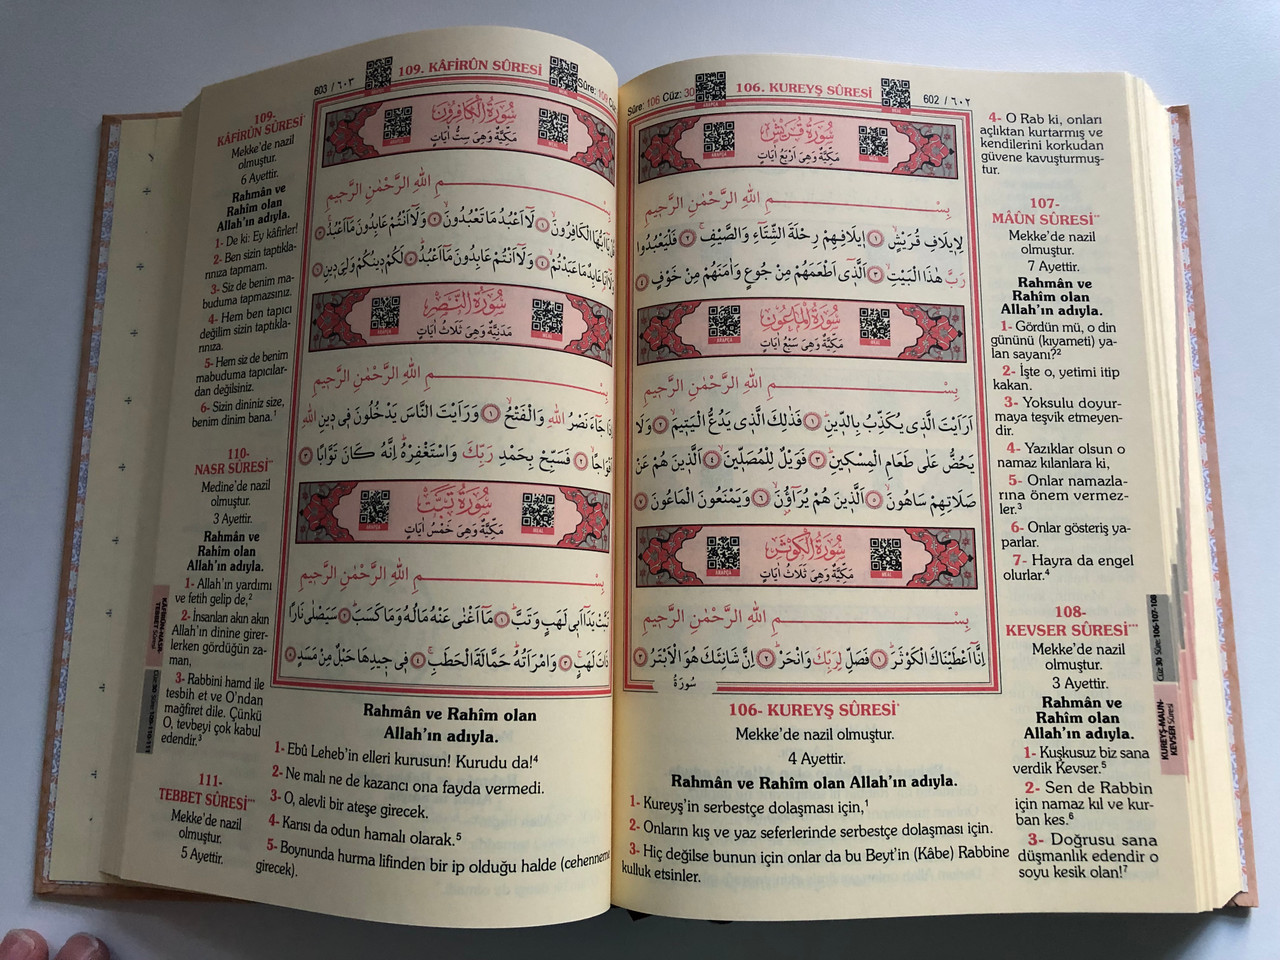 Sûre: 106 Cüz: 30
106. KUREYŞ SÛRESİ
602 / ٦٠٢
سُورَةُ قُرَيْشٍ
مَكِّيَّةٌ وَهِىَ اَرْبَعُ اٰيَاتٍ
ARAPÇA
MEAL
بِسْمِ اللهِ الرَّحْمٰنِ الرَّحِيمِ
لِاِيلَافِ قُرَيْشٍ ﴿١﴾ اِيلَافِهِمْ رِحْلَةَ الشِّتَٓاءِ وَالصَّيْفِ ﴿٢﴾ فَلْيَعْبُدُوا
رَبَّ هٰذَا الْبَيْتِ ﴿٣﴾ اَلَّذٖٓى اَطْعَمَهُمْ مِنْ جُوعٍ وَاٰمَنَهُمْ مِنْ خَوْفٍ ﴿٤﴾
سُورَةُ الْمَاعُونِ
مَكِّيَّةٌ وَهِىَ سَبْعُ اٰيَاتٍ
ARAPÇA
MEAL
بِسْمِ اللهِ الرَّحْمٰنِ الرَّحِيمِ
اَرَاَيْتَ الَّذٖى يُكَذِّبُ بِالدّٖينِ ﴿١﴾ فَذٰلِكَ الَّذٖى يَدُعُّ الْيَتٖيمَ ﴿٢﴾ وَلَا
يَحُضُّ عَلٰى طَعَامِ الْمِسْكٖينِ ﴿٣﴾ فَوَيْلٌ لِلْمُصَلّٖينَ ﴿٤﴾ اَلَّذٖينَ هُمْ عَنْ
صَلَاتِهِمْ سَاهُونَ ﴿٥﴾ اَلَّذٖينَ هُمْ يُرَٓاؤُ۫نَ ﴿٦﴾ وَيَمْنَعُونَ الْمَاعُونَ ﴿٧﴾
سُورَةُ الْكَوْثَرِ
مَكِّيَّةٌ وَهِىَ ثَلَاثُ اٰيَاتٍ
ARAPÇA
MEAL
بِسْمِ اللهِ الرَّحْمٰنِ الرَّحِيمِ
اِنَّٓا اَعْطَيْنَاكَ الْكَوْثَرَ ﴿١﴾ فَصَلِّ لِرَبِّكَ وَانْحَرْ ﴿٢﴾ اِنَّ شَانِئَكَ هُوَ الْاَبْتَرُ ﴿٣﴾
سُورَةُ
106- KUREYŞ SÛRESİ*
Mekke'de nazil olmuştur.
4 Ayettir.
Rahmân ve Rahîm olan Allah'ın adıyla.
1- Kureyş'in serbestçe dolaşması için,¹
2- Onların kış ve yaz seferlerinde serbestçe dolaşması için.
3- Hiç değilse bunun için onlar da bu Beyt'in (Kâbe) Rabbine
kulluk etsinler.
4- O Rab ki, onları
açlıktan kurtarmış ve
kendilerini korkudan
güvene kavuşturmuş-
tur.
107-
MÂÛN SÛRESİ**
Mekke'de nazil
olmuştur.
7 Ayettir.
Rahmân ve
Rahîm olan
Allah'ın adıyla.
1- Gördün mü, o din
gününü (kıyameti) ya-
lan sayanı?²
2- İşte o, yetimi itip
kakan.
3- Yoksulu doyur-
maya teşvik etmeyen-
dir.
4- Yazıklar olsun o
namaz kılanlara ki,
5- Onlar namazla-
rına önem vermez-
ler.³
6- Onlar gösteriş ya-
parlar.
7- Hayra da engel
olurlar.⁴
108-
KEVSER SÛRESİ***
Mekke'de nazil
olmuştur.
3 Ayettir.
Rahmân ve
Rahîm olan
Allah'ın adıyla.
1- Kuşkusuz biz sana
verdik Kevser.⁵
2- Sen de Rabbin
için namaz kıl ve kur-
ban kes.⁶
3- Doğrusu sana
düşmanlık edendir o
soyu kesik olan!⁷
Cüz: 30 Sûre: 106-107-108
KUREYŞ-MAUN-
KEVSER Sûresi
603 / ٦٠٣
109. KÂFİRÛN SÛRESİ
Sûre: 109
سُورَةُ الْكَافِرُونَ
مَكِّيَّةٌ وَهِىَ سِتُّ اٰيَاتٍ
ARAPÇA
MEAL
بِسْمِ اللهِ الرَّحْمٰنِ الرَّحِيمِ
قُلْ يَٓا اَيُّهَا الْكَافِرُونَ ﴿١﴾ لَٓا اَعْبُدُ مَا تَعْبُدُونَ ﴿٢﴾ وَلَٓا اَنْتُمْ عَابِدُونَ مَٓا اَعْبُدُ ﴿٣﴾
وَلَٓا اَنَا۬ عَابِدٌ مَا عَبَدْتُمْ ﴿٤﴾ وَلَٓا اَنْتُمْ عَابِدُونَ مَٓا اَعْبُدُ ﴿٥﴾ لَكُمْ دٖينُكُمْ وَلِىَ دٖينِ ﴿٦﴾
سُورَةُ النَّصْرِ
مَدَنِيَّةٌ وَهِىَ ثَلَاثُ اٰيَاتٍ
ARAPÇA
MEAL
بِسْمِ اللهِ الرَّحْمٰنِ الرَّحِيمِ
اِذَا جَٓاءَ نَصْرُ اللهِ وَالْفَتْحُ ﴿١﴾ وَرَاَيْتَ النَّاسَ يَدْخُلُونَ فٖى دٖينِ اللهِ
اَفْوَاجًا ﴿٢﴾ فَسَبِّحْ بِحَمْدِ رَبِّكَ وَاسْتَغْفِرْهُ اِنَّهُ كَانَ تَوَّابًا ﴿٣﴾
سُورَةُ تَبَّتْ
مَكِّيَّةٌ وَهِىَ خَمْسُ اٰيَاتٍ
ARAPÇA
MEAL
بِسْمِ اللهِ الرَّحْمٰنِ الرَّحِيمِ
تَبَّتْ يَدَٓا اَبٖى لَهَبٍ وَتَبَّ ﴿١﴾ مَٓا اَغْنٰى عَنْهُ مَالُهُ وَمَا كَسَبَ ﴿٢﴾ سَيَصْلٰى نَارًا
ذَاتَ لَهَبٍ ﴿٣﴾ وَامْرَاَتُهُ حَمَّالَةَ الْحَطَبِ ﴿٤﴾ فٖى جٖيدِهَا حَبْلٌ مِنْ مَسَدٍ ﴿٥﴾
109-
KÂFİRÛN SÛRESİ*
Mekke'de nazil
olmuştur.
6 Ayettir.
Rahmân ve
Rahîm olan
Allah'ın adıyla.
1- De ki: Ey kâfirler!
2- Ben sizin taptıkla-
rınıza tapmam.
3- Siz de benim ma-
buduma tapmazsınız.
4- Hem ben tapıcı
değilim sizin taptıkla-
rınıza.
5- Hem siz de benim
mabuduma tapıcılar-
dan değilsiniz.
6- Sizin dininiz size,
benim dinim bana.¹
110-
NASR SÛRESİ**
Medine'de nazil
olmuştur.
3 Ayettir.
Rahmân ve
Rahîm olan
Allah'ın adıyla.
1- Allah'ın yardımı
ve fetih gelip de,²
2- İnsanları akın akın
Allah'ın dinine girer-
lerken gördüğün za-
man,
3- Rabbini hamd ile
tesbih et ve O'ndan
mağfiret dile. Çünkü
O, tevbeyi çok kabul
edendir.³
111-
TEBBET SÛRESİ***
Mekke'de nazil
olmuştur.
5 Ayettir.
Rahmân ve Rahîm olan
Allah'ın adıyla.
1- Ebû Leheb'in elleri kurusun! Kurudu da!⁴
2- Ne malı ne de kazancı ona fayda vermedi.
3- O, alevli bir ateşe girecek.
4- Karısı da odun hamalı olarak.⁵
5- Boynunda hurma lifinden bir ip olduğu halde (cehenneme
girecek).
KÂFİRÛN-NASR-
TEBBET Sûresi
Cüz: 30 Sûre: 109-110-111